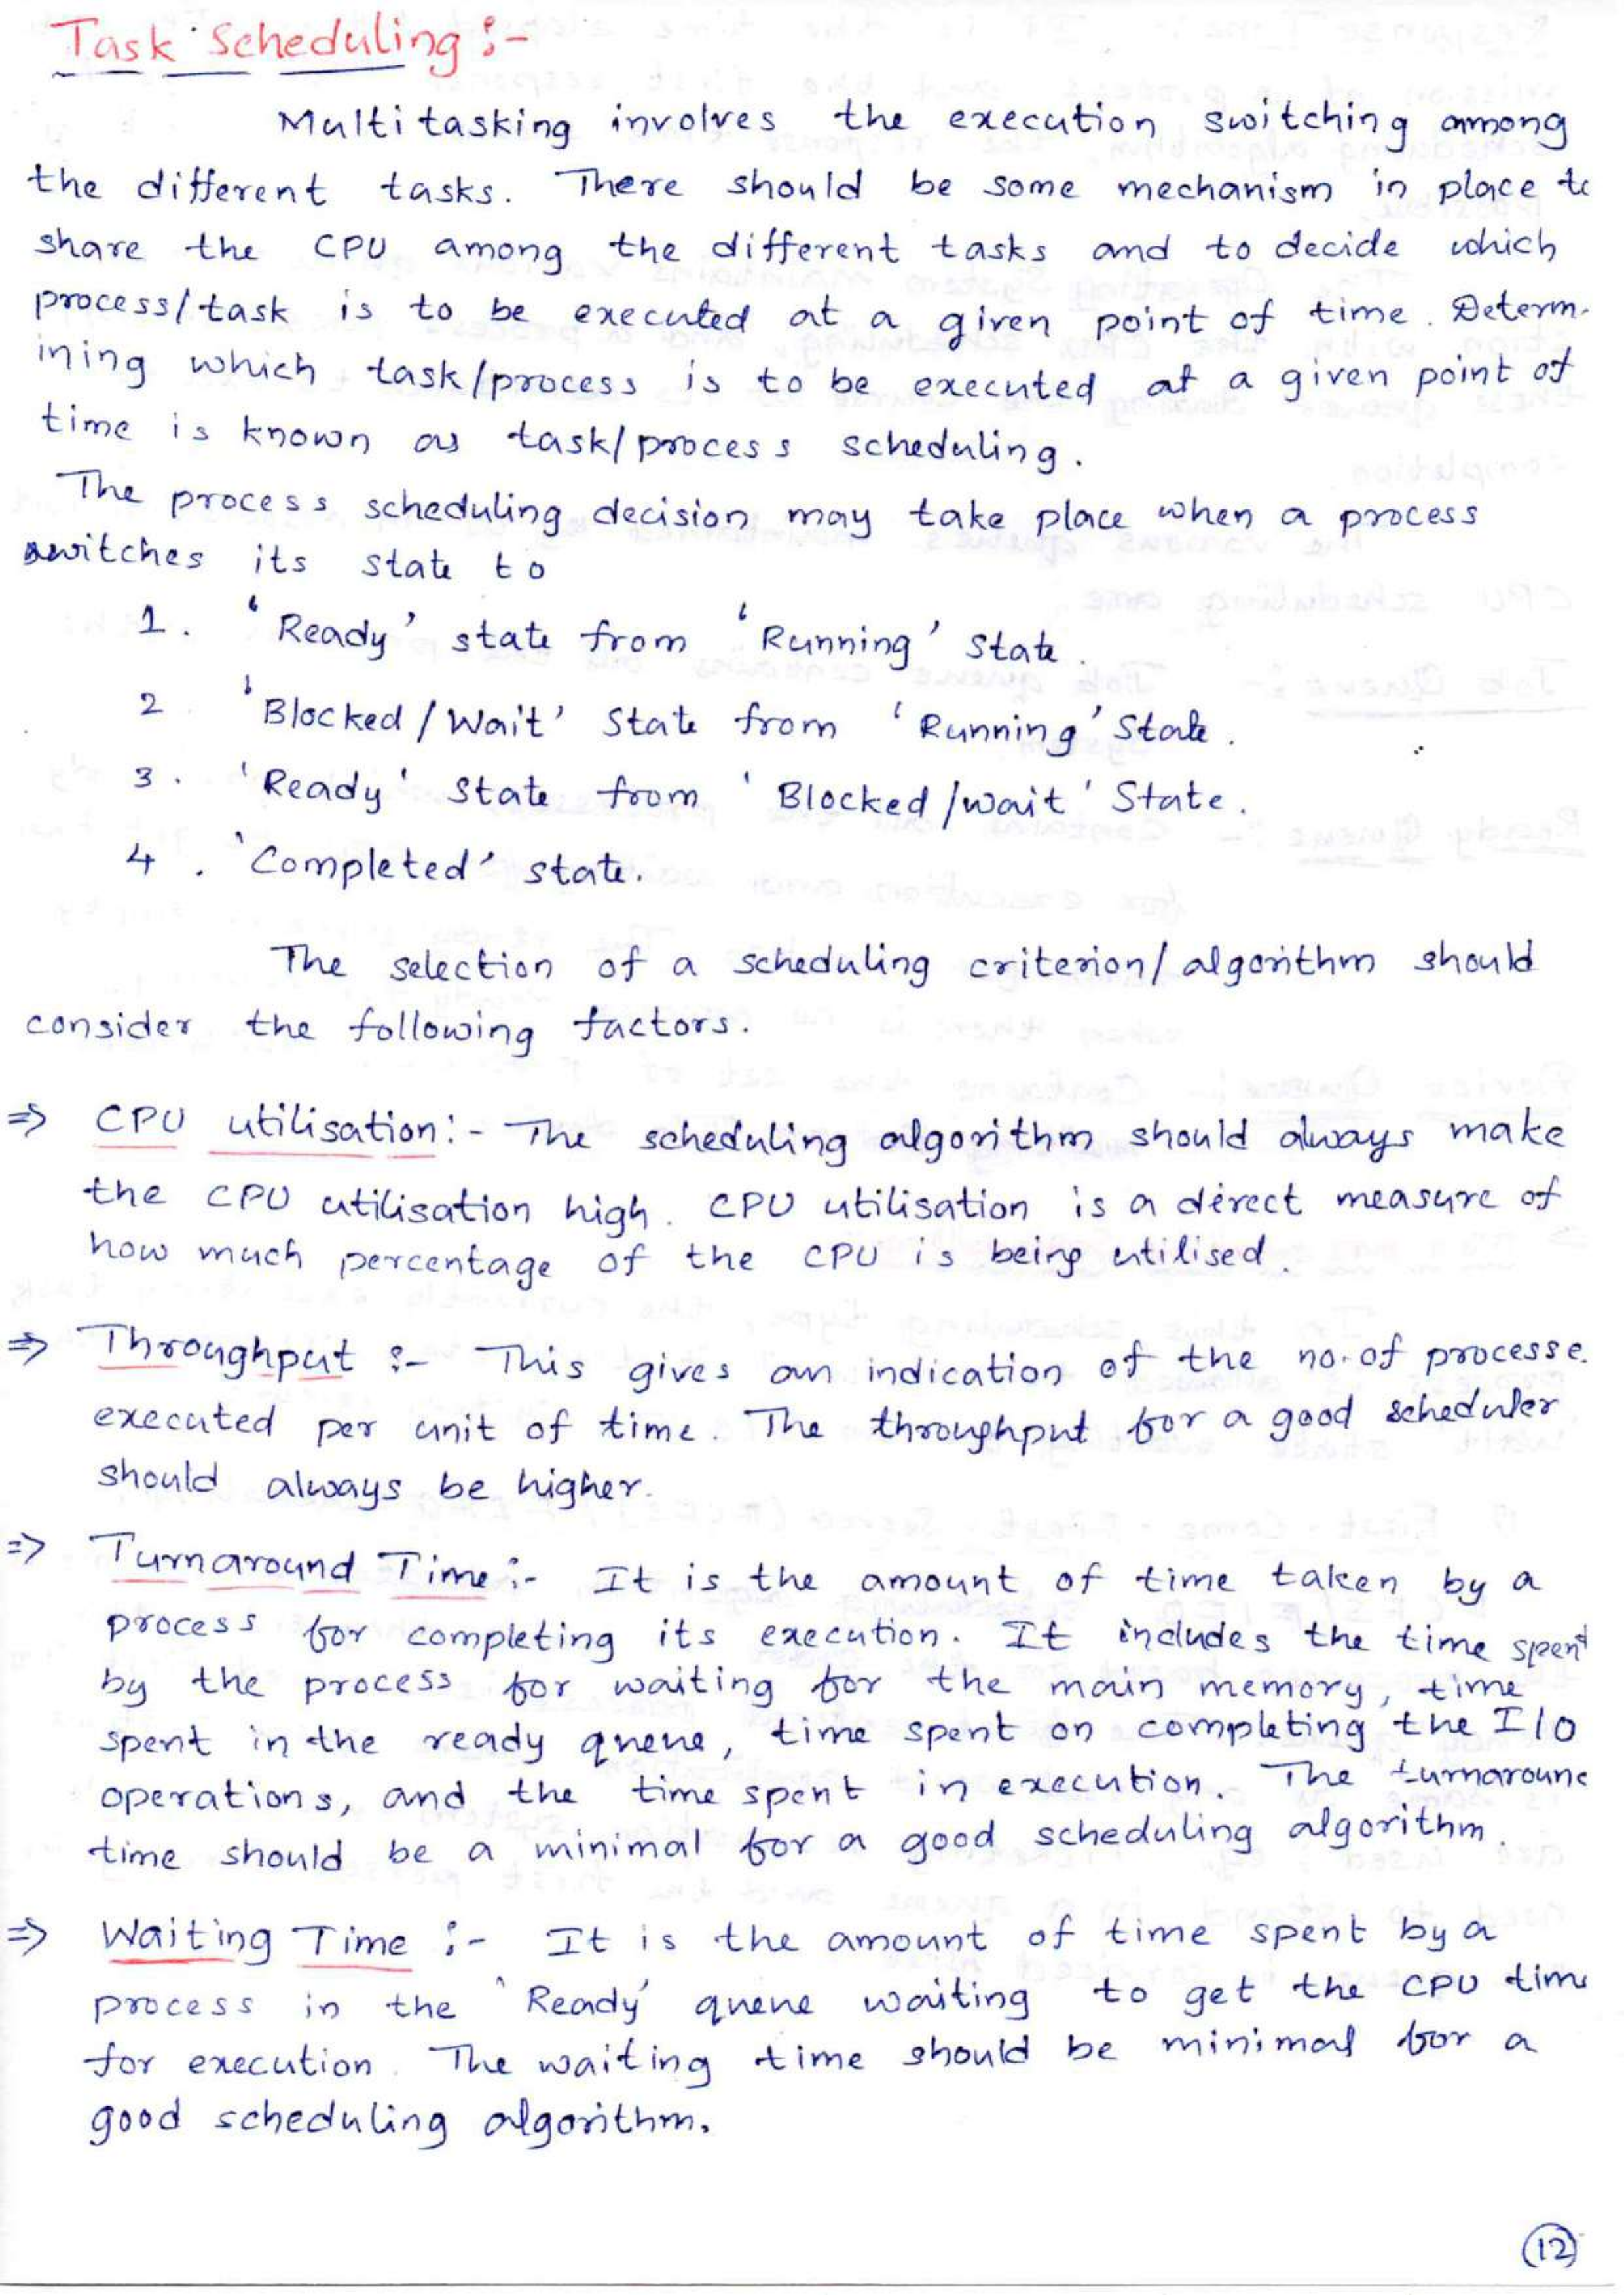 Task Scheduling :-
Multitasking involves the execution switching among
the different tasks. There should be some mechanism in place to
share the CPU among the different tasks and to decide which
process/task is to be executed at a given point of time. Determ-
ining which task/process is to be executed at a given point of
time is known as task/process scheduling.
The process scheduling decision may take place when a process
switches its state to
1. 'Ready' state from 'Running' State.
2. 'Blocked/Wait' State from 'Running' State.
3. 'Ready' State from 'Blocked/wait' State.
4. 'Completed' state.
The selection of a scheduling criterion/algorithm should
consider the following factors.
⇒ CPU utilisation:- The scheduling algorithm should always make
the CPU utilisation high. CPU utilisation is a direct measure of
how much percentage of the CPU is being utilised.
⇒ Throughput :- This gives an indication of the no. of processe
executed per unit of time. The throughput for a good scheduler
should always be higher.
⇒ Turnaround Time:- It is the amount of time taken by a
process for completing its execution. It includes the time spent
by the process for waiting for the main memory, time
spent in the ready queue, time spent on completing the I/O
operations, and the time spent in execution. The turnaround
time should be a minimal for a good scheduling algorithm.
⇒ Waiting Time :- It is the amount of time spent by a
process in the 'Ready' queue waiting to get the CPU time
for execution. The waiting time should be minimal for a
good scheduling algorithm.
12